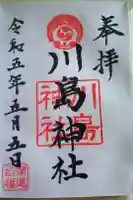 奉拝
川島神社
川島
神社
令和五年五月五日